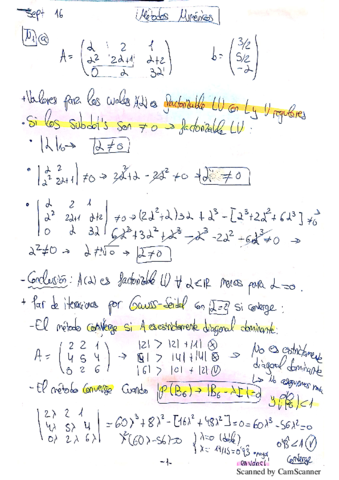 Sept 16
Métodos Numéricos
A = ( 2 2 1
2² 22+1 2+2
0 2 32 )
b = ( 3/2
5/2
-2 )
+ Valores para los cuales A(2) es factorizable LU con L y U regulares
• Si los subdet's son ≠ 0 → factorizable LU:
• |2| ≠ 0 → 2 ≠ 0
• | 2 2
2² 22+1 | ≠ 0
• | 2 2 1
2² 22+1 2+2
0 2 32 | ≠ 0
2² ≠ 0 → 2 ≠ 0
- Conclusión: A(2) es factorizable LU ∀ 2 ∈ R menos para 2 = 0.
+ Par de iteraciones por Gauss-Seidel con 2=2 si converge:
- El método converge si A es estrictamente diagonal dominante:
A = ( 2 2 1
4 5 4
0 2 6 )
|2| > |2| + |1|
|5| > |4| + |4|
|6| > |0| + |2|
No es estrictamente
diagonal dominante
- El método converge cuando
ρ(B6) <1
| 2λ 2 1
4λ 5λ 4
0 2λ 6λ | = 60λ³ + 8λ² - [16λ² + 48λ²] = 0 = 60λ³ - 56λ² = 0
λ² (60λ - 56) = 0
λ = 0 (doble)
λ = 14/15 = 0'93
converge
-1-
Scanned by CamScanner